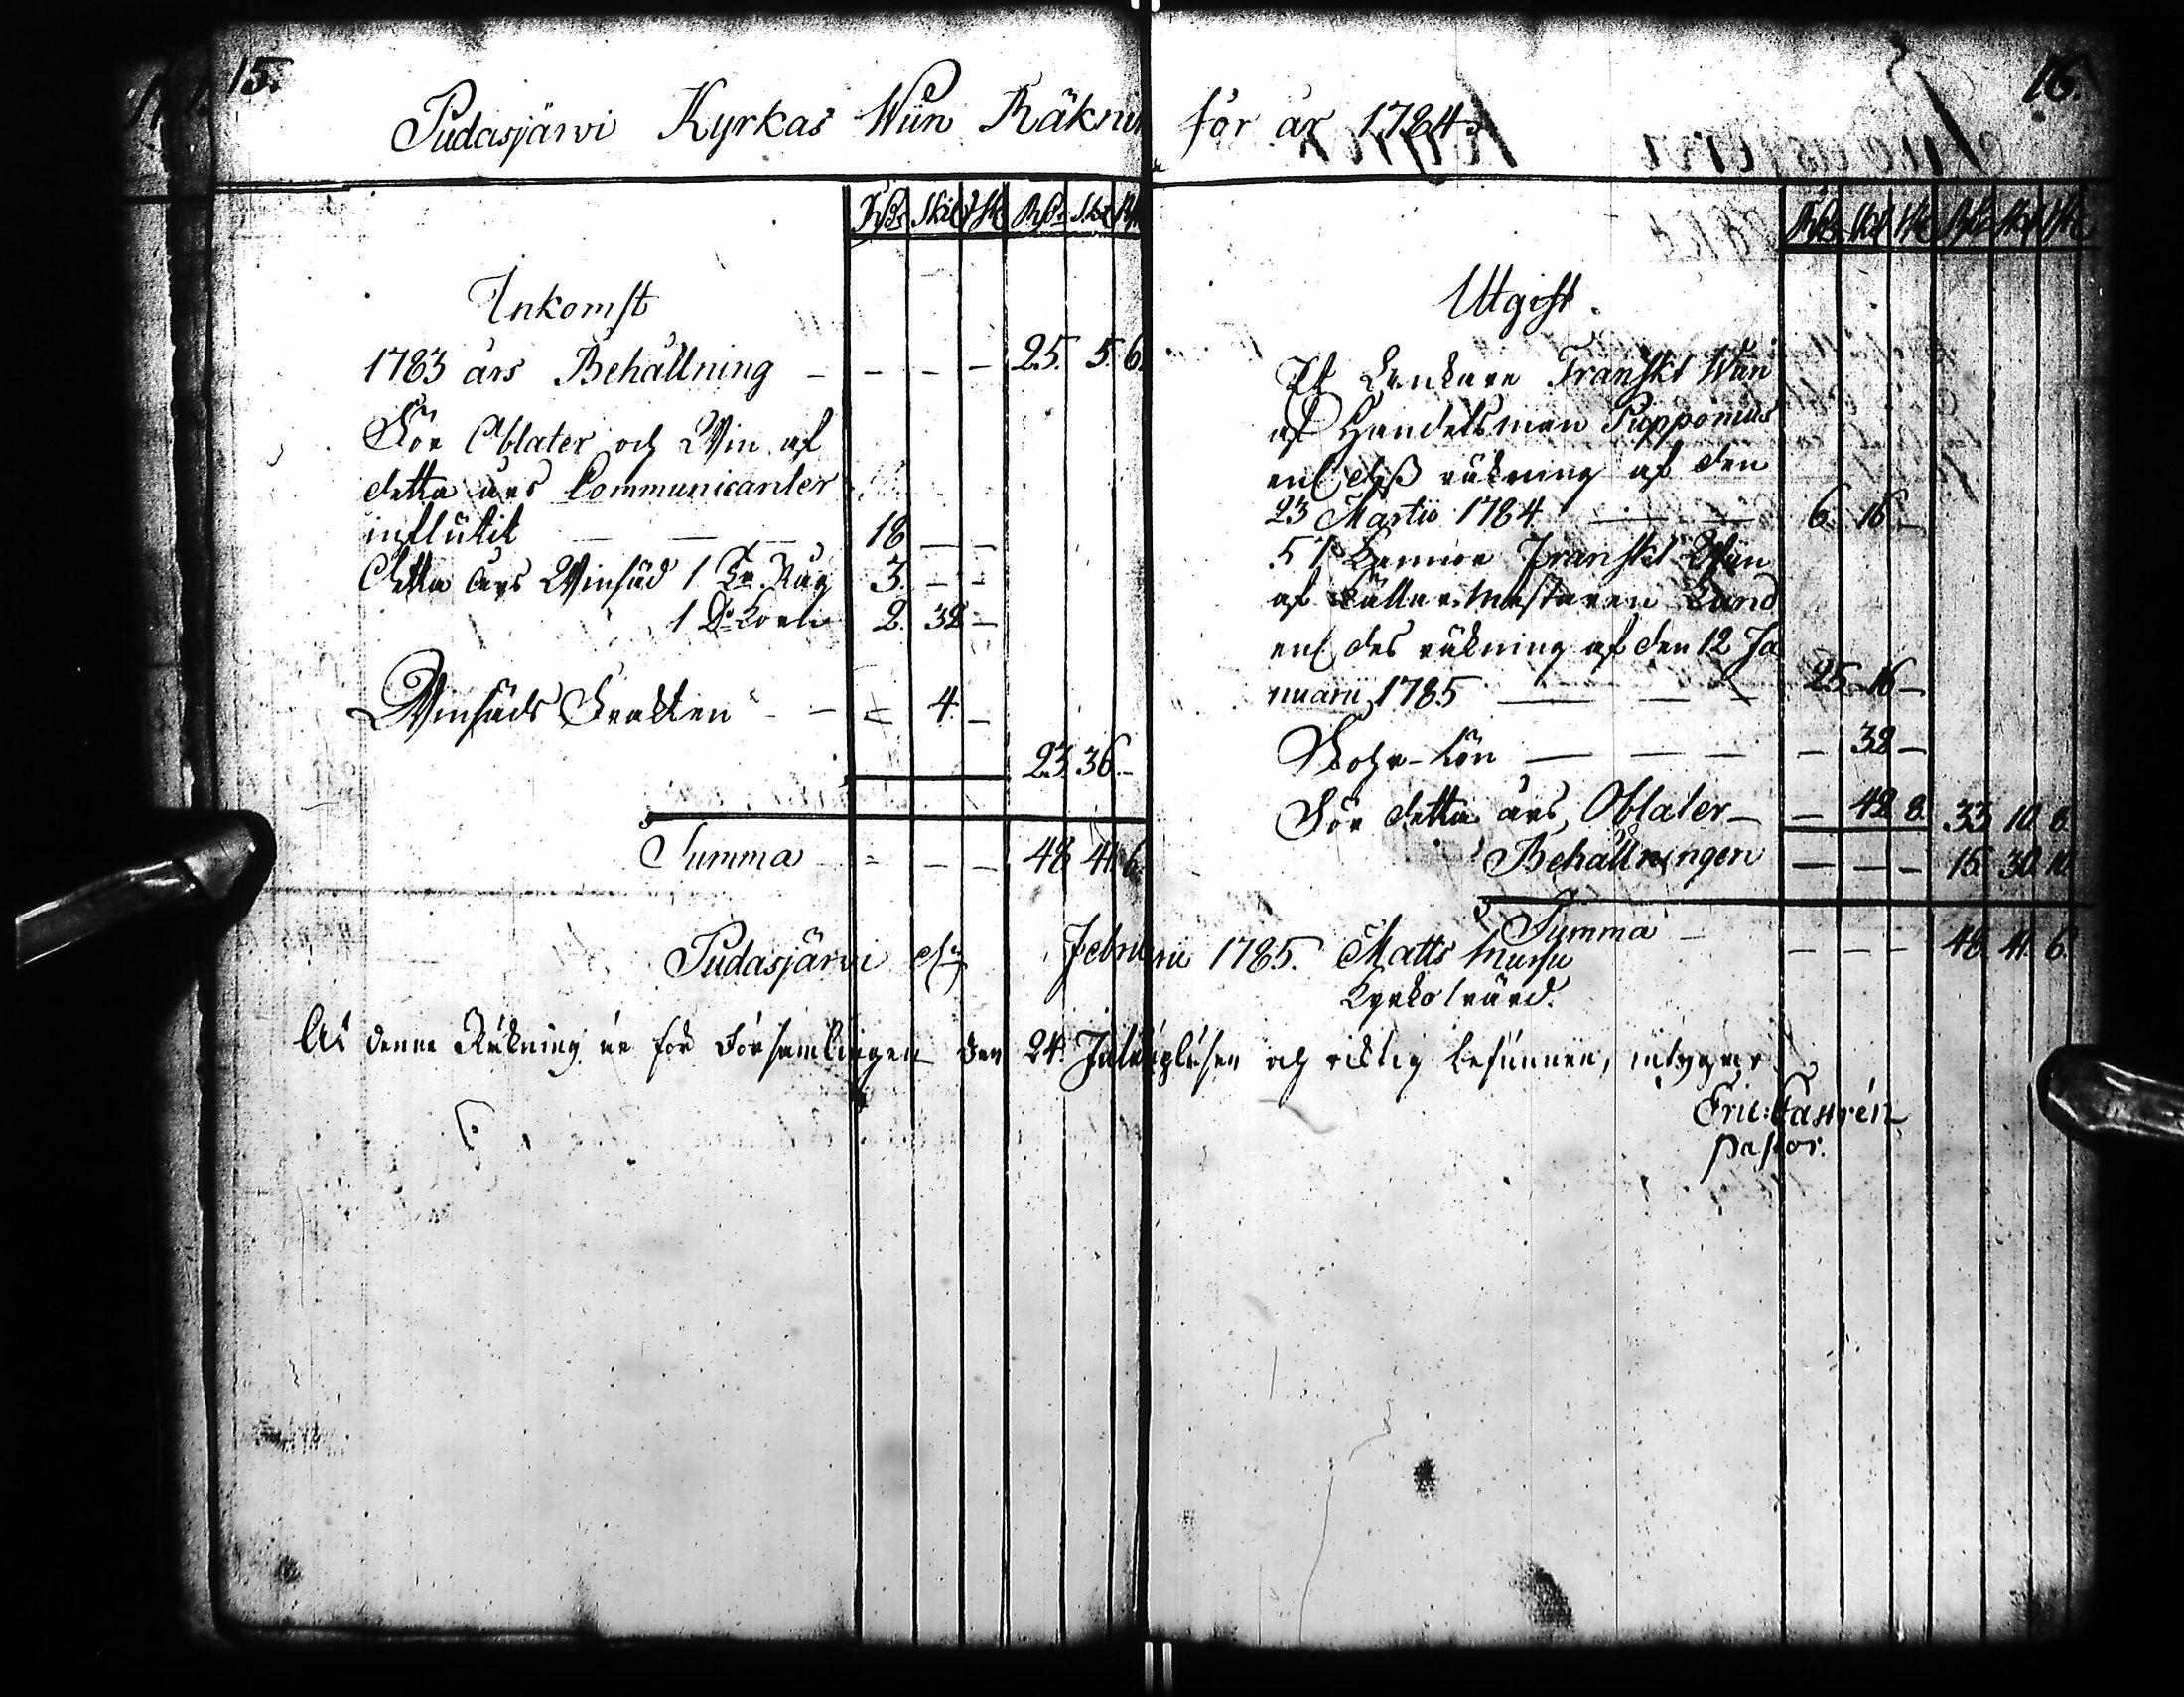 15.
Pudasjärvi Kyrkas Wiin Räkni för år 1784.
16.
Rds Skil rst Rds Skil rst
Inkomst
1783 års Behållning – – – – 25. 5. 6.
För Oblater och Win af
detta års Communicanter
influtit — — — 18 — —
Detta års Winsäd 1 Tn Råg 3. – –
1 D:o Korn 2. 32 –
Winsäds Frakten – – – 4. –
23. 36. –
Summa – – – 48 41 6.
Rds Skil rst Rds Skil rst
Utgift.
Ett Franskt Wiin
af Handelsman Pupponius
enl. dess räkning af den
23 Martii 1784 — — 6. 16 –
5 1/2 Kannor Franskt Wiin
af Källarmästaren Lund
enl. des räkning af den 12 Ja
nuarii 1785 — — — 25 – 16 –
– lön — — — – 32 –
För detta års Oblater – – 42 8. 33 10 8.
Behållningen — — – 15. 30. 10.
Summa – – – – 48. 41. 6.
Pudasjärvi d. Februarii 1785. Matts
Kyrkovärd.
At denne Räkning är för Församlingen den 24. Julii upläsen och riktig befunnen, intygar
Eric: Castrén
pastor.